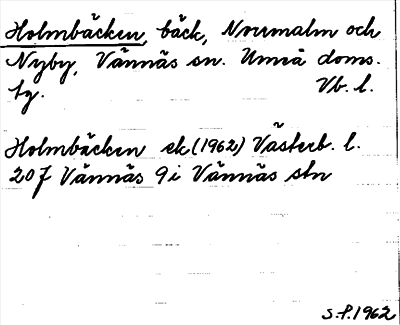 Holmbäcken, bäck, Norrmalm och
Nyby, Vännäs sn. Umeå doms.
tg. Vb. l.
Holmbäcken ek. (1962) Västerb. l.
20 J Vännäs 9 i Vännäs stn
S.P. 1962